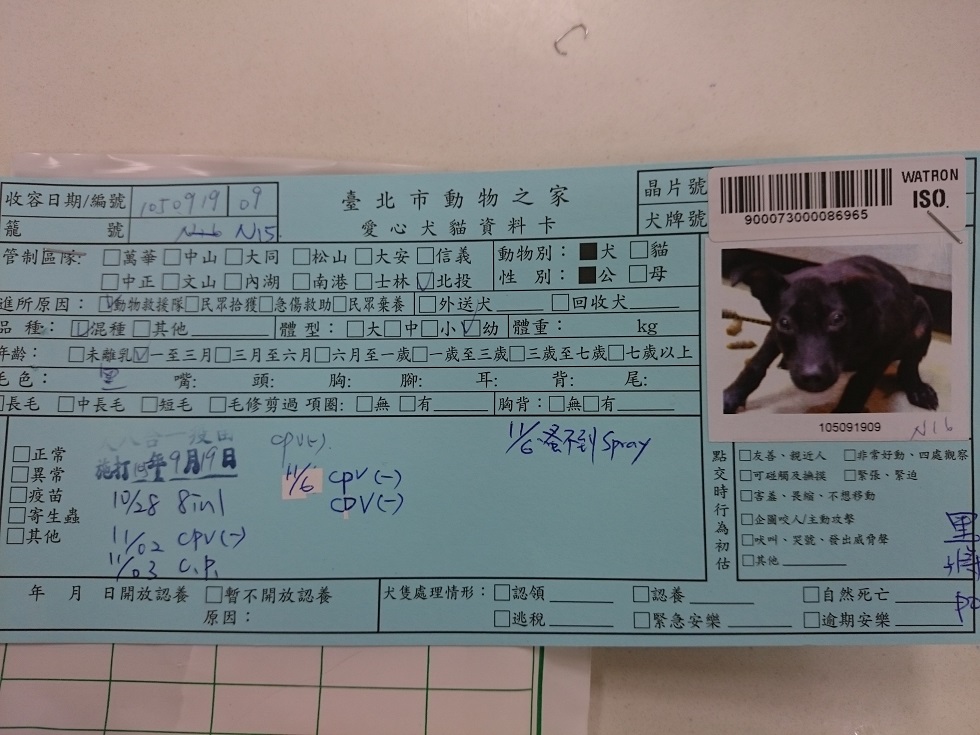 收容日期/編號 1050919 09
臺北市動物之家
晶片號
WATRON
ISO.
900073000086965
籠號 N15
愛心犬貓資料卡
犬牌號
管制區隊: □萬華□中山□大同 □松山□大安□信義
動物別：■犬□貓
□中正□文山□內湖 □南港□士林☑北投
性別：■公□母
進所原因：☑動物救援隊□民眾拾獲□急傷救助□民眾棄養 □外送犬 □回收犬
品種：☑混種□其他 體型：□大□中□小☑幼 體重： kg
年齡：□未離乳☑一至三月□三月至六月□六月至一歲□一歲至三歲□三歲至七歲□七歲以上
毛色：黑 嘴: 頭: 胸: 腳: 耳: 背: 尾:
□長毛 □中長毛 □短毛 □毛修剪過 項圈: □無 □有 胸背：□無□有
105091909
N16
□正常
□異常
□疫苗
□寄生蟲
□其他
施打 年9月19日
10/28 8in1
11/02 CPV(-)
11/03 C.P.
CPV(-).
11/6 CPV(-)
CDV(-)
11/6 蚤不到Spray
點交時行為初估
□友善、親近人 □非常好動、四處觀察
□可碰觸及撫摸 □緊張、緊迫
□害羞、畏縮、不想移動
□企圖咬人/主動攻擊
□吠叫、哭號、發出威脅聲
□其他
黑
年 月 日開放認養 □暫不開放認養
原因：
犬隻處理情形：□認領 □認養 □自然死亡
□逃稅 □緊急安樂 □逾期安樂